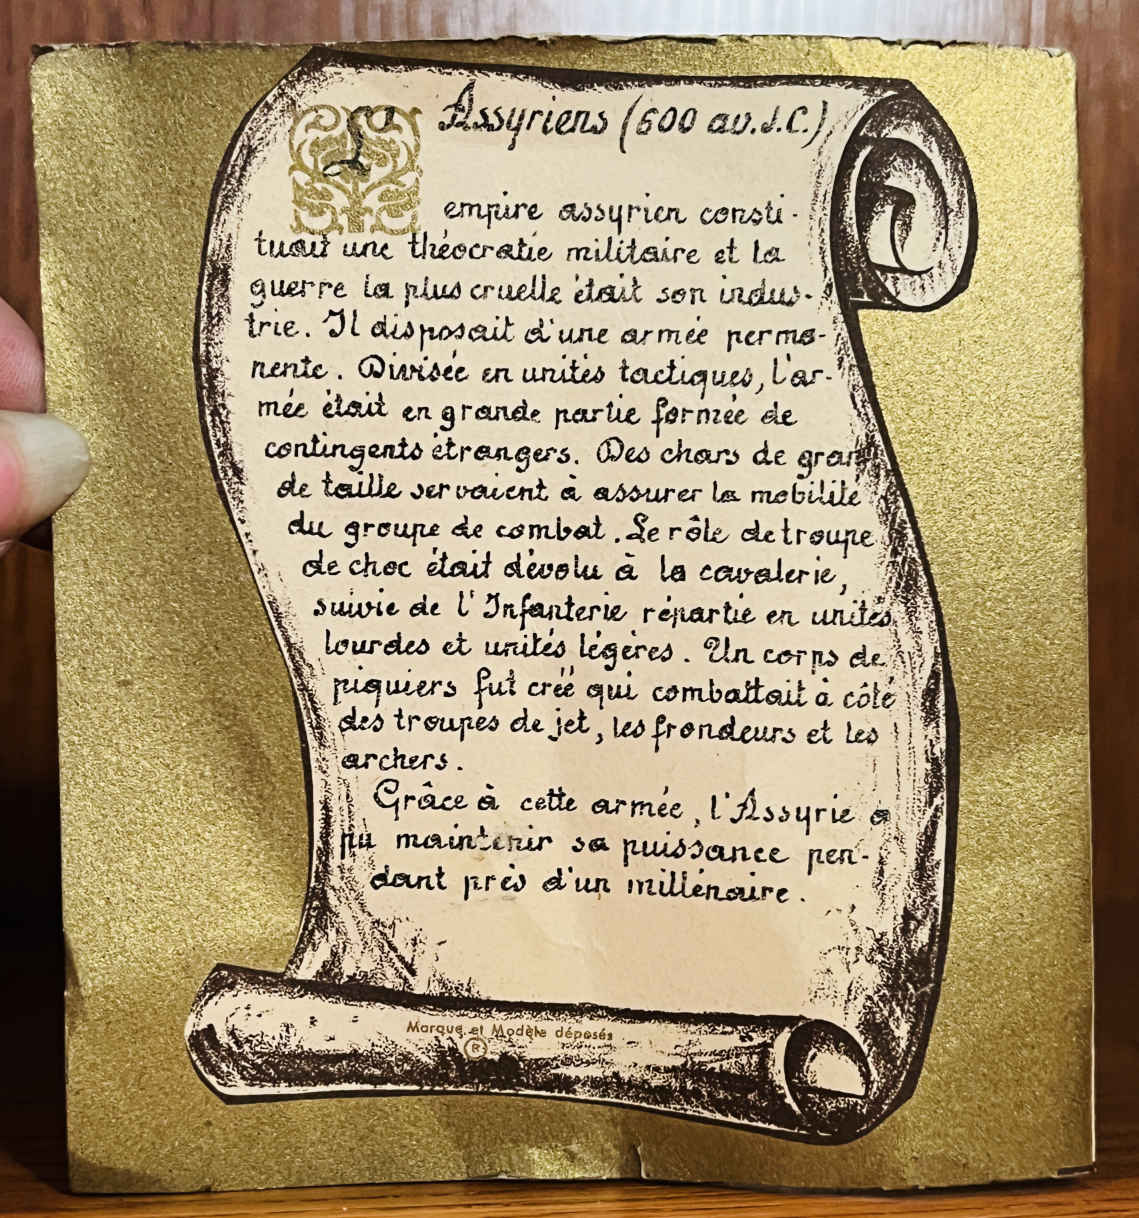 Assyriens (600 av.J.C.)
L'empire assyrien consti-
tuait une théocratie militaire et la
guerre la plus cruelle était son indus-
trie. Il disposait d'une armée perma-
nente. Divisée en unités tactiques, l'ar-
mée était en grande partie formée de
contingents étrangers. Des chars de gran
de taille servaient à assurer la mobilité
du groupe de combat. Le rôle de troupe
de choc était dévolu à la cavalerie,
suivie de l'Infanterie répartie en unités
lourdes et unités légères. Un corps de
piquiers fut créé qui combattait à côté
des troupes de jet, les frondeurs et les
archers.
Grâce à cette armée, l'Assyrie a
pu maintenir sa puissance pen-
dant près d'un millénaire.
Marque et Modèle déposés
®